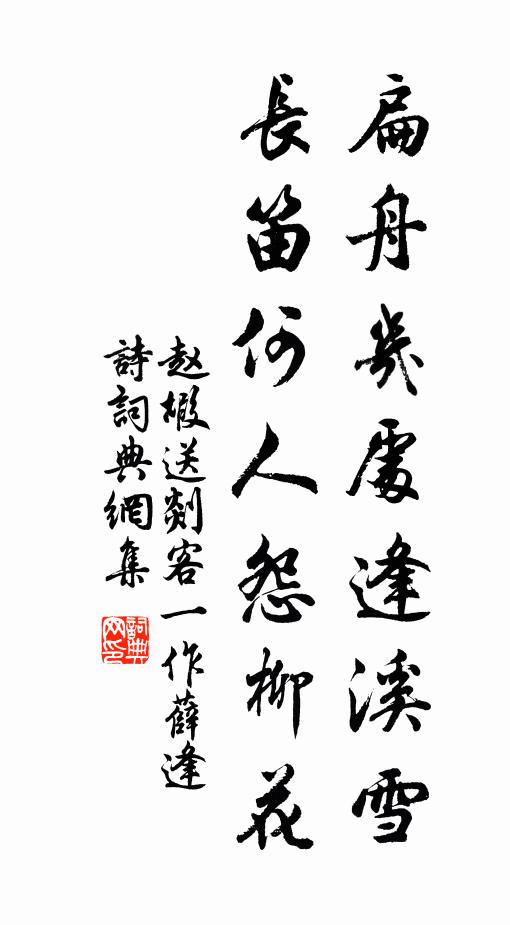 扁舟幾處逢溪雪
長笛何人怨柳花
赵嘏送剡客一作薛逢
詩詞典網集
詞典
网印